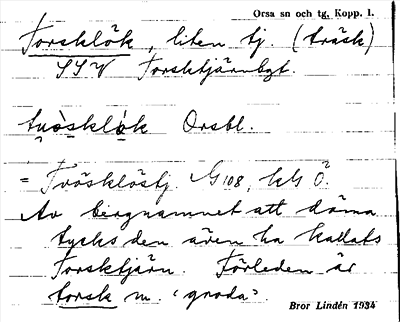 Orsa sn och tg. Kopp. l.
Torsklök, liten tj. (träsk)
SSV Torsktjärnbgt.
tuòsklọk Orsbl.
= Trösklöstj. G108, kM Ö.
Av bergnamnet att döma
tycks den även ha kallats
Torsktjärn. Förleden är
torsk m. 'groda'
Bror Lindén 1934